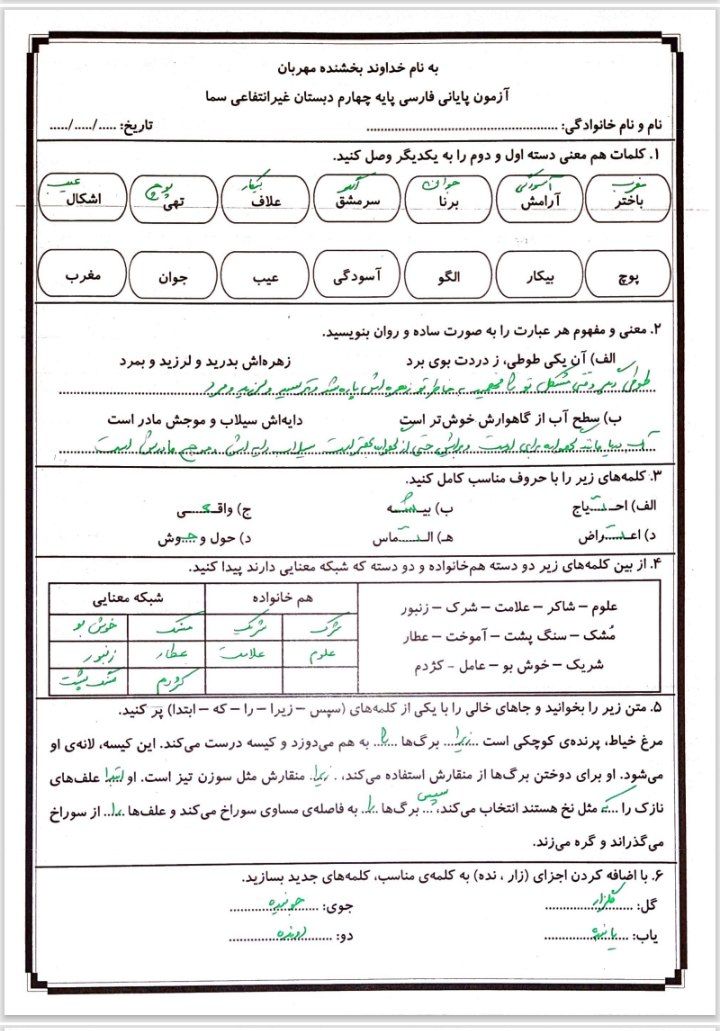 به نام خداوند بخشنده مهربان
آزمون پایانی فارسی پایه چهارم دبستان غیرانتفاعی سما
نام و نام خانوادگی: ........................ تاریخ: ...../...../.....
۱. کلمات هم معنی دسته اول و دوم را به یکدیگر وصل کنید.
مغرب آسودگی جوان الگو بیکار پوچ عیب
باختر آرامش برنا سرمشق علاف تهی اشکال
پوچ بیکار الگو آسودگی عیب جوان مغرب
۲. معنی و مفهوم هر عبارت را به صورت ساده و روان بنویسید.
الف) آن یکی طوطی، ز دردت بوی برد زهره‌اش بدرید و لرزید و بمرد
طوطی دیگر وقتی مشکل تو را فهمید به خاطر تو زهره اش پاره شد و ترسید و لرزید و مرد
ب) سطح آب از گاهوارش خوش‌تر است دایه‌اش سیلاب و موجش مادر است
آب دریا مانند گهواره برای اوست و برایش حتی از گهواره بهتر است سیلاب دایه اش و موج مادرش است
۳. کلمه‌های زیر را با حروف مناسب کامل کنید.
الف) احـ..ـتـ..ـیاج ب) بیـ..ـشـ..ـه ج) واقـ..ـعـ..ـی
د) اعـ..ـتـ..ـراض هـ) الـ..ـتـ..ـماس د) حول و ..حـ..ـوش
۴. از بین کلمه‌های زیر دو دسته هم‌خانواده و دو دسته که شبکه معنایی دارند پیدا کنید.
هم خانواده شبکه معنایی
علوم – شاکر – علامت – شرک – زنبور
مُشک – سنگ پشت – آموخت – عطار
شریک – خوش بو – عامل - کژدم
شرک شریک مشک خوش بو
علوم علامت عطار زنبور
کژدم سنگ پشت
۵. متن زیر را بخوانید و جاهای خالی را با یکی از کلمه‌های (سپس – زیرا – را – که – ابتدا) پر کنید.
مرغ خیاط، پرنده‌ی کوچکی است ..زیرا.. برگ‌ها ..را.. به هم می‌دوزد و کیسه درست می‌کند. این کیسه، لانه‌ی او
می‌شود. او برای دوختن برگ‌ها از منقارش استفاده می‌کند، ..زیرا.. منقارش مثل سوزن تیز است. او ابتدا علف‌های
نازک را ..که.. مثل نخ هستند انتخاب می‌کند، ..سپس.. برگ‌ها ..را.. به فاصله‌ی مساوی سوراخ می‌کند و علف‌ها ..را.. از سوراخ
می‌گذراند و گره می‌زند.
۶. با اضافه کردن اجزای (زار ، نده) به کلمه‌ی مناسب، کلمه‌های جدید بسازید.
گل: ....گلزار.... جوی: ....جوینده....
یاب: ....یابنده.... دو: ....دونده....